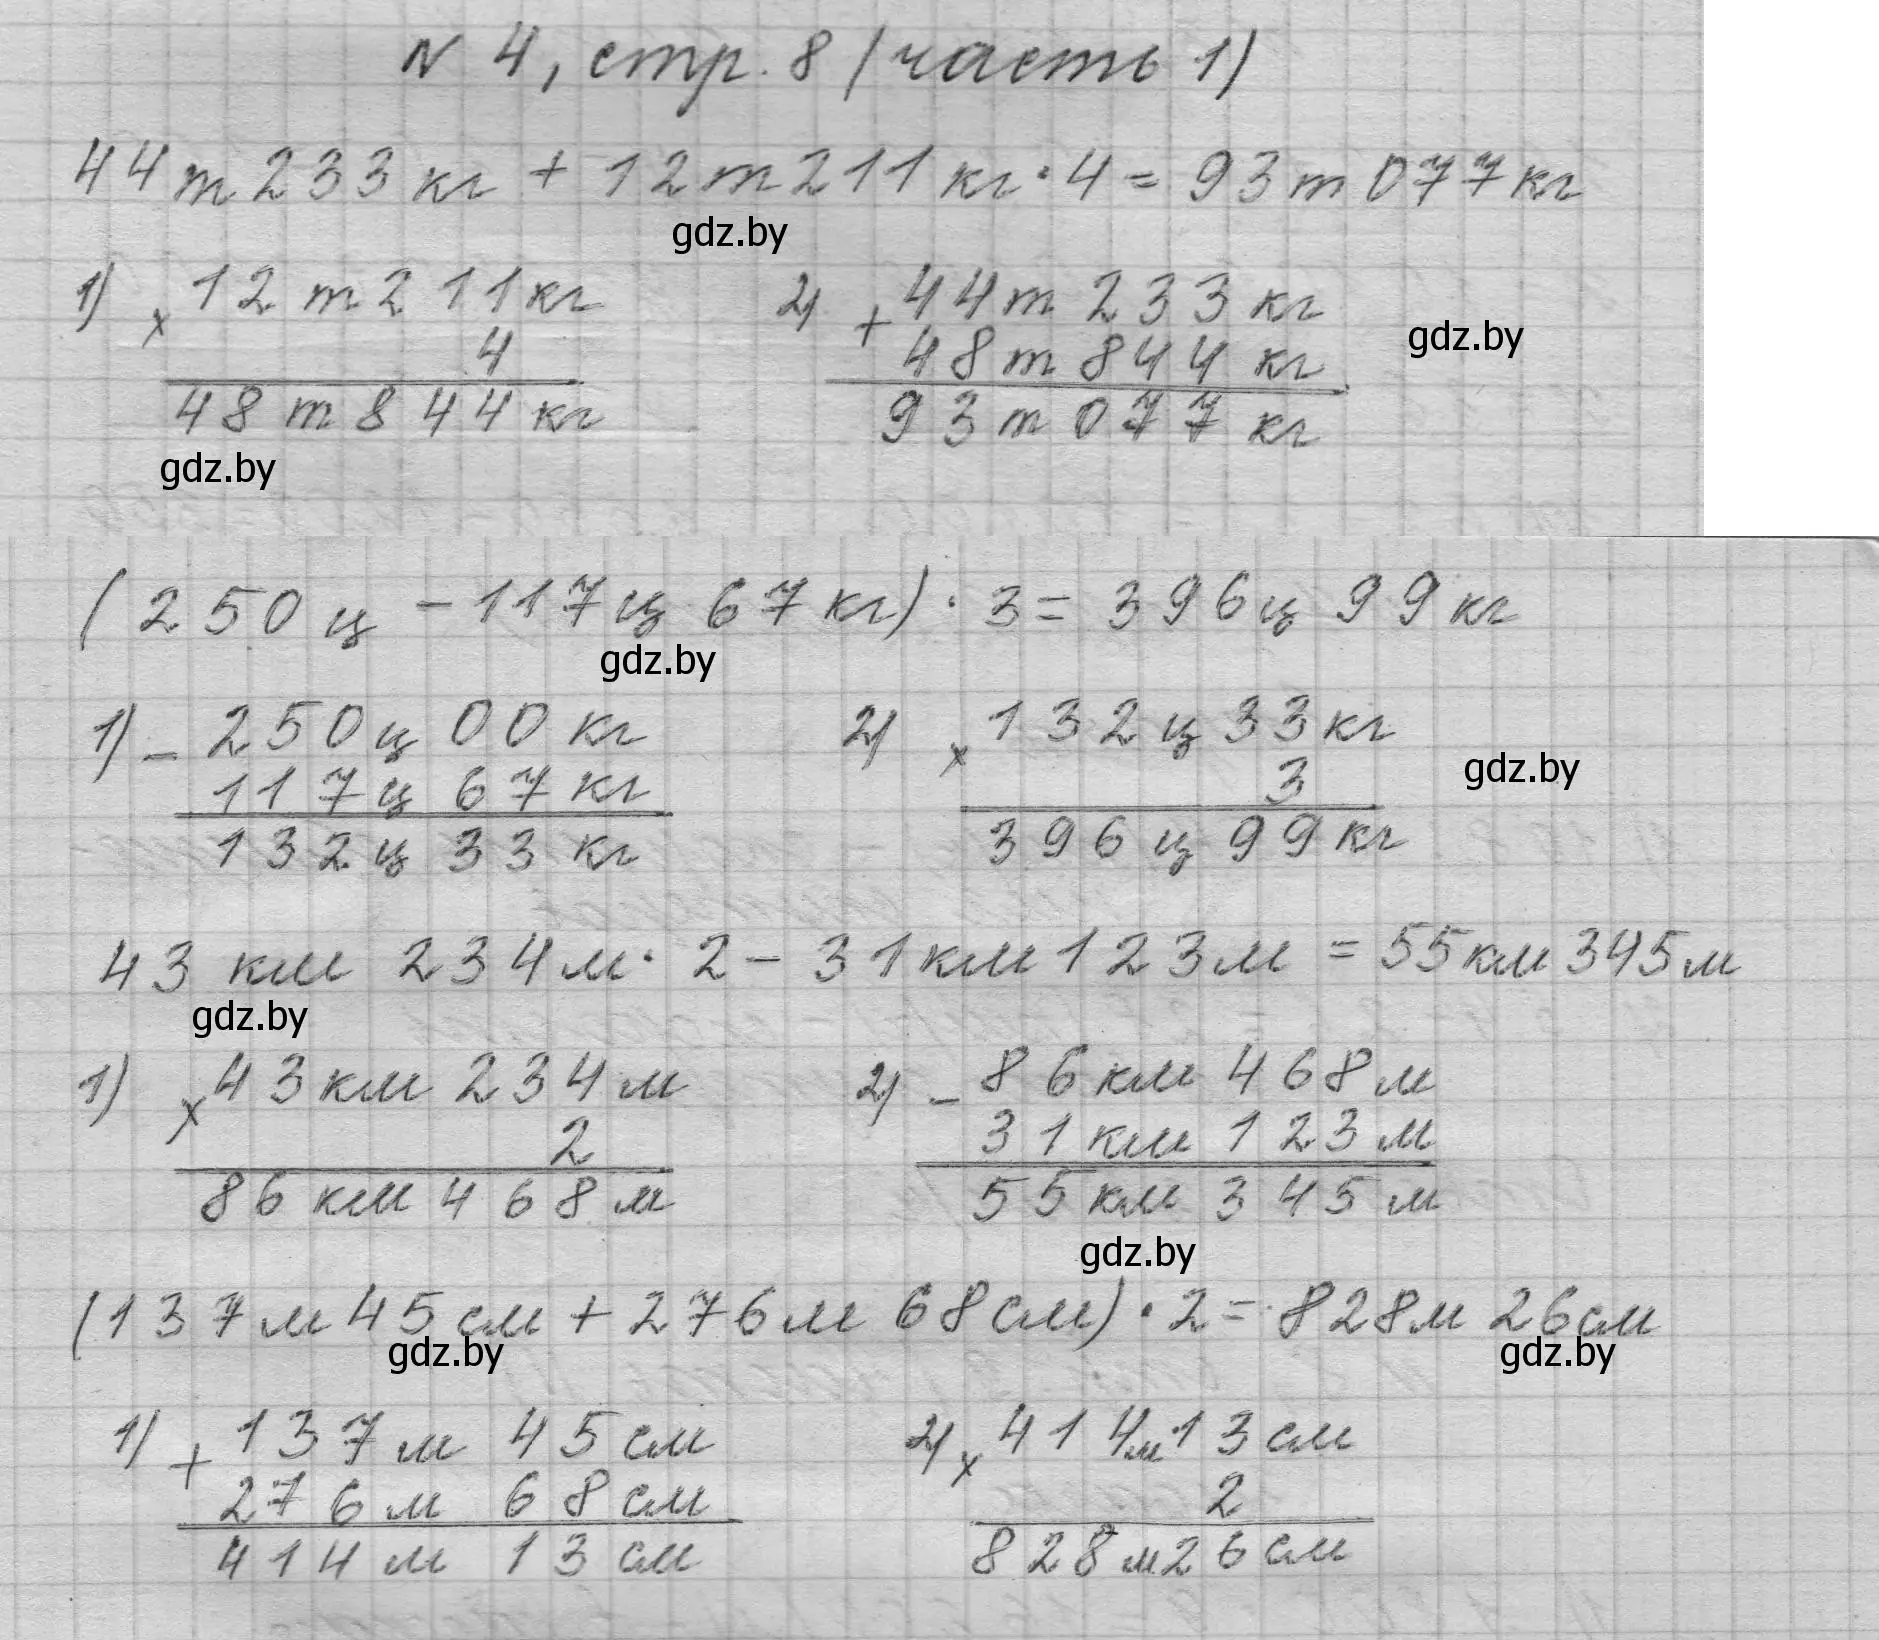 N 4, стр. 8 (часть 1)
44 т 233 кг + 12 т 211 кг · 4 = 93 т 077 кг
gdz.by
1) × 12 т 211 кг
4
48 т 844 кг
gdz.by
2) + 44 т 233 кг
48 т 844 кг
93 т 077 кг
gdz.by
(250 ц - 117 ц 67 кг) · 3 = 396 ц 99 кг
gdz.by
1) - 250 ц 00 кг
117 ц 67 кг
132 ц 33 кг
2) × 132 ц 33 кг
3
396 ц 99 кг
gdz.by
43 км 234 м · 2 - 31 км 123 м = 55 км 345 м
gdz.by
1) × 43 км 234 м
2
86 км 468 м
2) - 86 км 468 м
31 км 123 м
55 км 345 м
gdz.by
(137 м 45 см + 276 м 68 см) · 2 = 828 м 26 см
gdz.by
gdz.by
1) + 137 м 45 см
276 м 68 см
414 м 13 см
2) × 414 м 13 см
2
828 м 26 см